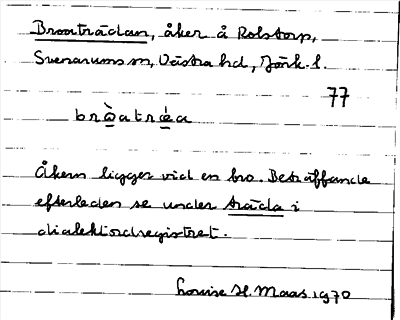 Broaträdan, åker å Rolstorp,
Svenarums sn, Västra hd, Jönk. l.
77
bròatrǽa
Åkern ligger vid en bro. Beträffande
efterleden se under träda i
dialektordregistret.
Louise H. Maas 1970